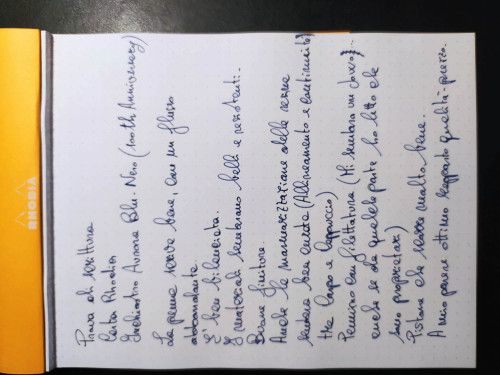 RHODIA
Prova di scrittura
Carta Rhodia
Inchiostro Aurora Blu-Nero (100th Anniversary)
La penna scrive bene, con un flusso
abbondante.
E' ben bilanciata.
I materiali sembrano belli e resistenti.
Buone finiture.
Anche la marmorizzazione della resina
sembra ben curata (Allineamento e continuità)
tra corpo e cappuccio)
Pennino con filettatura (Mi sembra un Jowo,
anche se da qualche parte ho letto che
sono proprietari)
Pistone che scorre molto bene.
A mio parere ottimo rapporto qualità-prezzo.